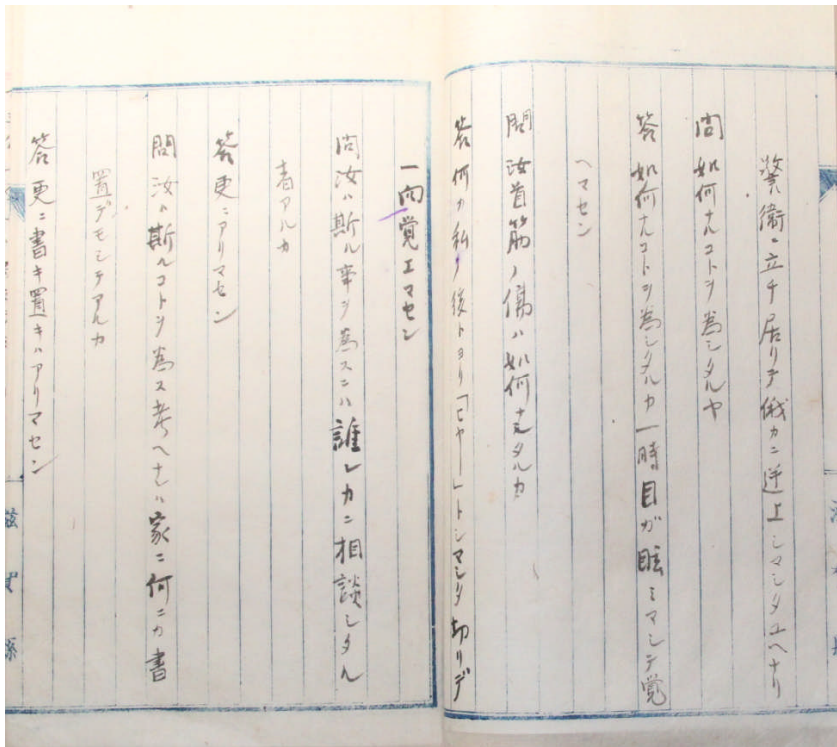 警衛ニ立チ居リテ俄カニ逆上シマシタユヘナリ
問 如何ナルコトヲ為シタルヤ
答 如何ナルコトヲ為シタルカ一時目ガ眩ミマシテ覚
ヘマセン
問 汝首筋ノ傷ハ如何ナシタルカ
答 何カ私ノ後トヨリ「ヒヤー」トシマシタ切リデ
一向覚エマセン
問 汝ハ斯ル事ヲ為スニハ誰レカニ相談シタル
者アルカ
答 更ニアリマセン
問 汝ハ斯ルコトヲ為ス考ヘナレハ家ニ何ニカ書
置デモシテアルカ
答 更ニ書キ置キハアリマセン
滋賀縣